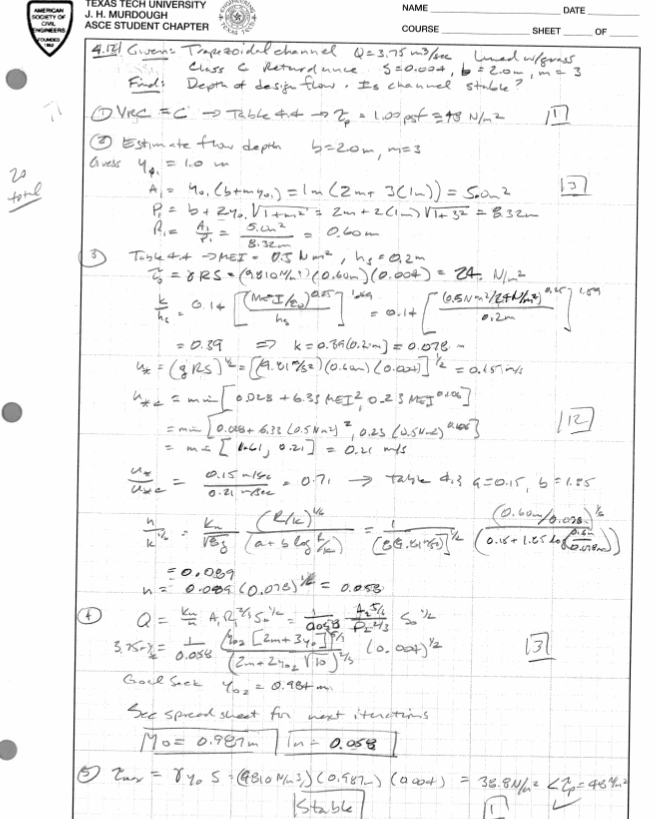 AMERICAN
SOCIETY OF
CIVIL
ENGINEERS
FOUNDED
1852
TEXAS TECH UNIVERSITY
J. H. MURDOUGH
ASCE STUDENT CHAPTER
NAME DATE
COURSE SHEET OF
4.12) Given: Trapezoidal channel Q=3.75 m³/sec Lined w/grass
Class C Retardance. S=0.004, b=2.0m, m=3
Find: Depth of design flow. Is channel stable?
① VRC = C → Table 4.4 → τp = 1.00 psf = 48 N/m² 1
② Estimate flow depth b=2.0m, m=3
Guess y₀₁ = 1.0 m
20
total
A₁ = y₀₁(b+my₀₁) = 1m(2m+3(1m)) = 5.0m² 3
P₁ = b+2y₀₁√1+m² = 2m+2(1m)√1+3² = 8.32m
R₁ = A₁/P₁ = 5.0m²/8.32m = 0.60m
③ Table 4.4 → MEI = 0.5 N m², hs = 0.2m
τ₀ = γRS = (9810N/m³)(0.60m)(0.004) = 24. N/m²
k/hs = 0.14 [(MEI/τ₀)^0.25/hs]^1.59 = 0.14 [(0.5Nm²/24N/m²)^0.25/0.2m]^1.59
= 0.39 ⇒ k=0.39(0.2m) = 0.078 m
u* = (gRS)^½ = [(9.81m/s²)(0.60m)(0.004)]^½ = 0.15 m/s
u*c = min[0.028 + 6.33 MEI², 0.23 MEI^0.106]
= min[0.028+6.33(0.5Nm²)², 0.23(0.5Nm²)^0.106] 12
= min[1.61, 0.21] = 0.21 m/s
u*/u*c = 0.15 m/sec/0.21 m/sec = 0.71 → table 4.3 a=0.15, b=1.85
n/k^1/6 = Kn/√8g (R/k)^1/6/(a+b log R/k) = 1/[8(9.81m/s²)]^½ (0.60m/0.078m)^1/6/(0.15+1.85 log(0.6m/0.078m))
= 0.089
n = 0.089(0.078)^1/6 = 0.058
④ Q = Kn/n A₁R₁^2/3 S₀^1/2 = 1/0.058 A₂^5/3/P₂^2/3 S₀^1/2
3.75 = 1/0.058 (y₀₂[2m+3y₀₂])^5/3/(2m+2y₀₂√10)^2/3 (0.004)^1/2 3
Goal Seek y₀₂ = 0.984 m
See spreadsheet for next iterations
y₀ = 0.987m n = 0.058
⑤ τmax = γy₀S = (9810N/m³)(0.987m)(0.004) = 38.8N/m² < τp=48N/m²
Stable 1